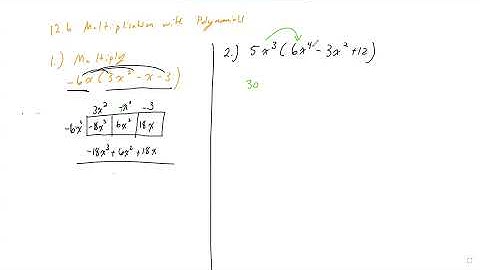 12.6 Multiplication with Polynomials
1.) Multiply
-6x(3x² - x - 3)
3x² -x -3
-6x -18x³ 6x² 18x
-18x³ + 6x² + 18x
2.) 5x³(6x⁴ - 3x² + 12)
30